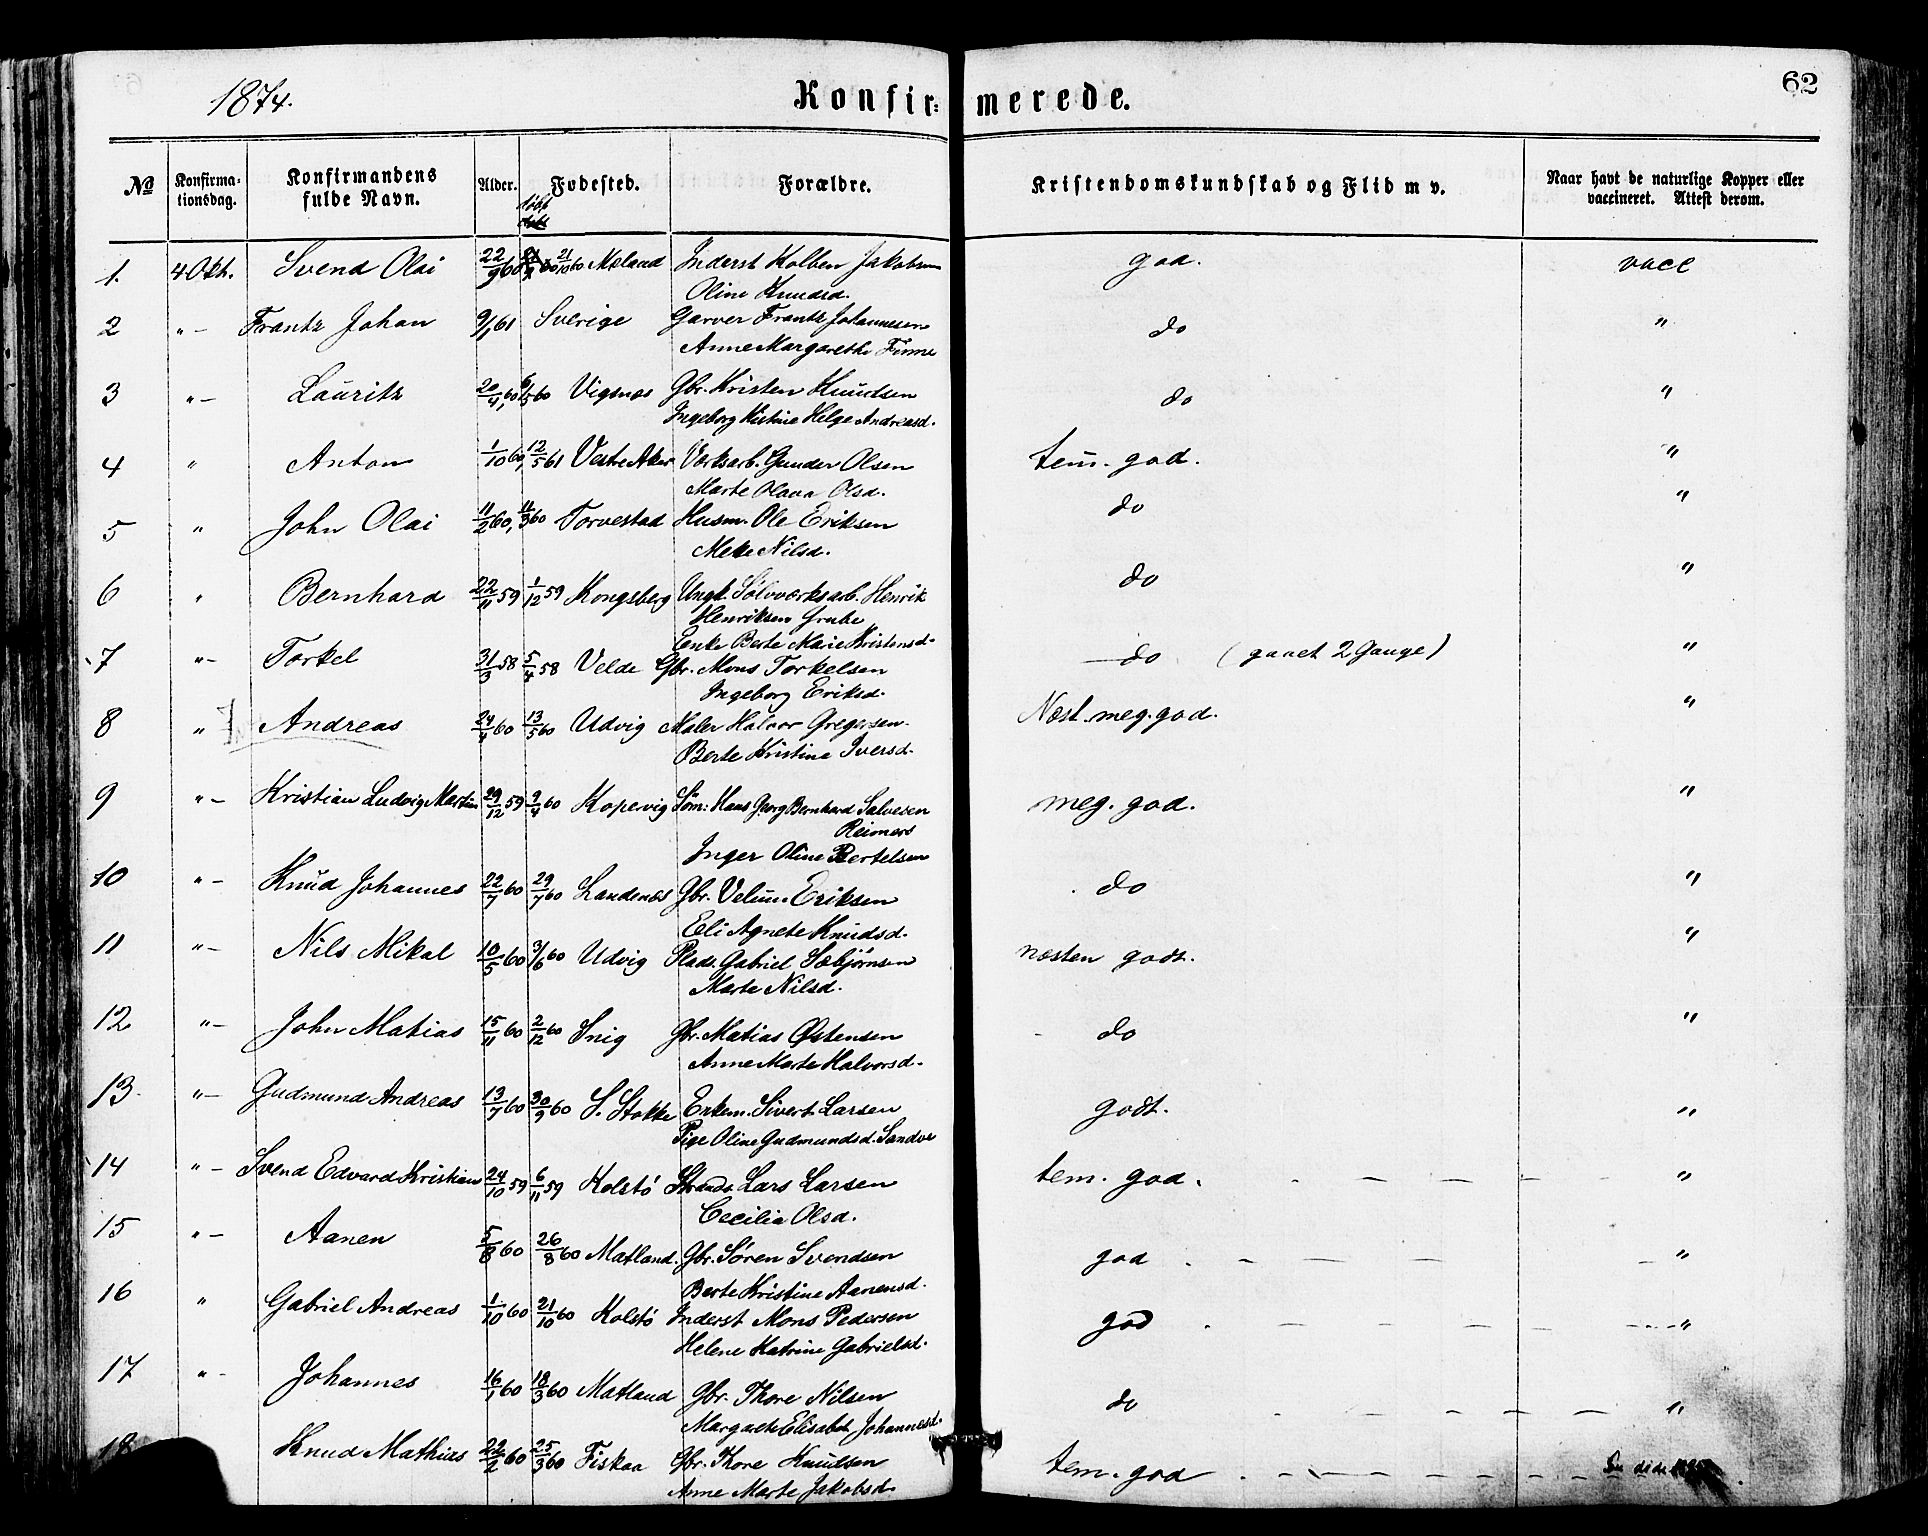 1874. Konfir- merede. 62
No Konfirma-tionsdag. Konfirmandens fulde Navn. Alder. Fødested. døbt Forældre. Kristendomskundskab og Flid m v. Naar havt de naturlige Kopper eller vaccineret. Attest derom.
1. 4 Okt. Svend Olai 22/9 60 21/10 60 Mæland Inderst Kolben Jakobsen god. vacc
Oline Knudsd.
2 " – Frantz Johan 9/1 61 Sverige Garver Frantz Johannesen do "
Anne Margarethe Finne
3 " – Lauritz 20/4 60, 6/5 60 Vigsnæs Gbr. Kristen Knudsen do "
Ingeborg Kistine Helge Andreasd.
4 " Anton 1/10 60, 12/5 61 Vestre Aker Værksarb. Gunder Olsen tem. god. "
Marte Olava Olsd.
5 " John Olai 11/2 60, 11/3 60 Torvestad Husm. Ole Eriksen do "
Mette Nilsd.
6 " Bernhard 22/11 59 1/12 59 Kongsberg Ungk. Sølvværksarb. Henrik do "
Henriksen Grube
Enke Berte Marie Kristensd.
7 " – Torkel 31/3 58 5/4 58 Velde Gbr. Mons Torkelsen do (gaaet 2 Gange) "
Ingeborg Eriksd.
8 " Andreas 24/4 60 13/5 60 Udvig Maler Halvor Gregersen. Næst. meg. god. "
Berte Kristine Iversd.
9 " – Kristian Ludvig Martin 29/12 59 9/4 60 Kopervig Søm: Hans Georg Bernhard Salvesen meg. god. "
Reimers
Inger Oline Bertelsen
10 " – Knud Johannes 22/7 60 29/7 60 Landenæs Gbr. Velum Eriksen do "
Eli Agnete Knudsd.
11 " – Nils Mikal 10/5 60 3/6 60 Udvig Plads. Gabriel Sæbjørnsen næsten godt. "
Marte Nilsd.
12 " – John Matias 15/11 60 2/12 60 Snig Gbr. Matias Østensen do "
Anne Marte Halvorsd.
13. " – Gudmund Andreas 13/7 60 30/9 60 S. Stokke Enkem. Sivert Larsen godt. "
Pige Oline Gudmundsd. Sandve
14 " – Svend Edvard Kristian 24/10 59 6/11 59 Kolstø Strands. Lars Larsen tem. god. "
Cecilia Olsd.
15 " – Aanen 5/8 60 26/8 60 Matland. Gbr. Sören Svendsen god "
Berte Kristine Aanensd.
16 " Gabriel Andreas 1/10 60 21/10 60 Kolstø Inderst Mons Pedersen god "
Helene Katrine Gabrielsd.
17 " – Johannes 16/1 60 18/3 60 Matland Gbr. Thore Nilsen do "
Margrete Elisabet Johannesd.
18 Knud Mathias 22/2 60 25/3 60 Fiskaa Gbr. Thore Knudsen tem. god
Anne Marte Jakobsd.